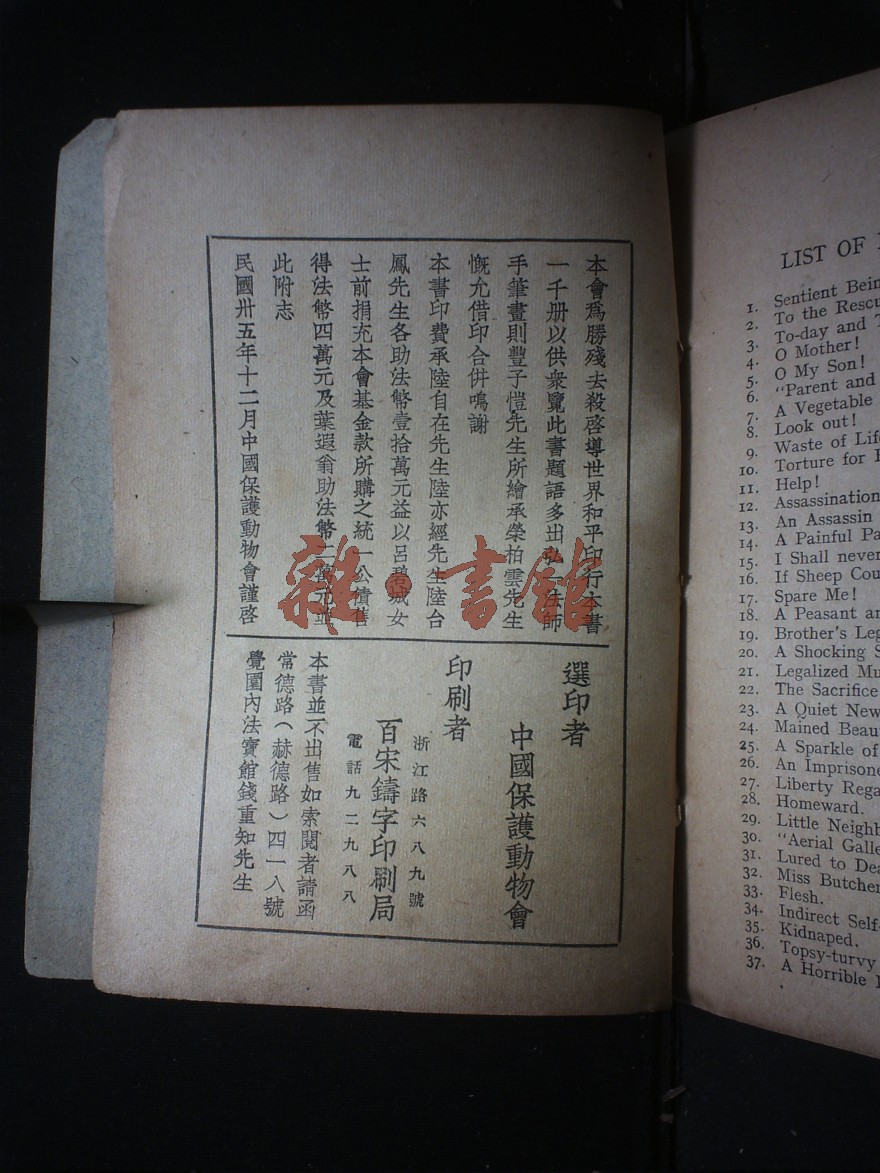 本會爲勝殘去殺啓導世界和平印行本書
一千册以供衆覽此書題語多出弘一法師
手筆畫則豐子愷先生所繪承榮柏雲先生
慨允借印合併鳴謝
本書印費承陸自在先生陸亦經先生陸台
鳳先生各助法幣壹拾萬元益以呂碧城女
士前捐充本會基金款所購之統一公債售
得法幣四萬元及葉遐翁助法幣二萬元並
此附志
民國卅五年十二月中國保護動物會謹啓
選印者
中國保護動物會
印刷者
浙江路六八九號
百宋鑄字印刷局
電話九二九八八
本書並不出售如索閱者請函
常德路(赫德路)四一八號
覺園內法寶館錢重知先生
雜·書館
LIST OF
1. Sentient
2. To the
3. To-day and
4. O Mother!
5. O My Son!
6. "Parent and
7. A Vegetable
8. Look out!
9. Waste of
10. Torture for
11. Help!
12. Assassination
13. An Assassin
14. A Painful
15. I Shall never
16. If Sheep
17. Spare Me!
18. A Peasant
19. Brother's
20. A Shocking
21. Legalized
22. The Sacrifice
23. A Quiet
24. Mained
25. A Sparkle of
26. An
27. Liberty
28. Homeward.
29. Little
30. "Aerial
31. Lured to
32. Miss
33. Flesh.
34. Indirect
35. Kidnaped.
36. Topsy-turvy
37. A Horrible